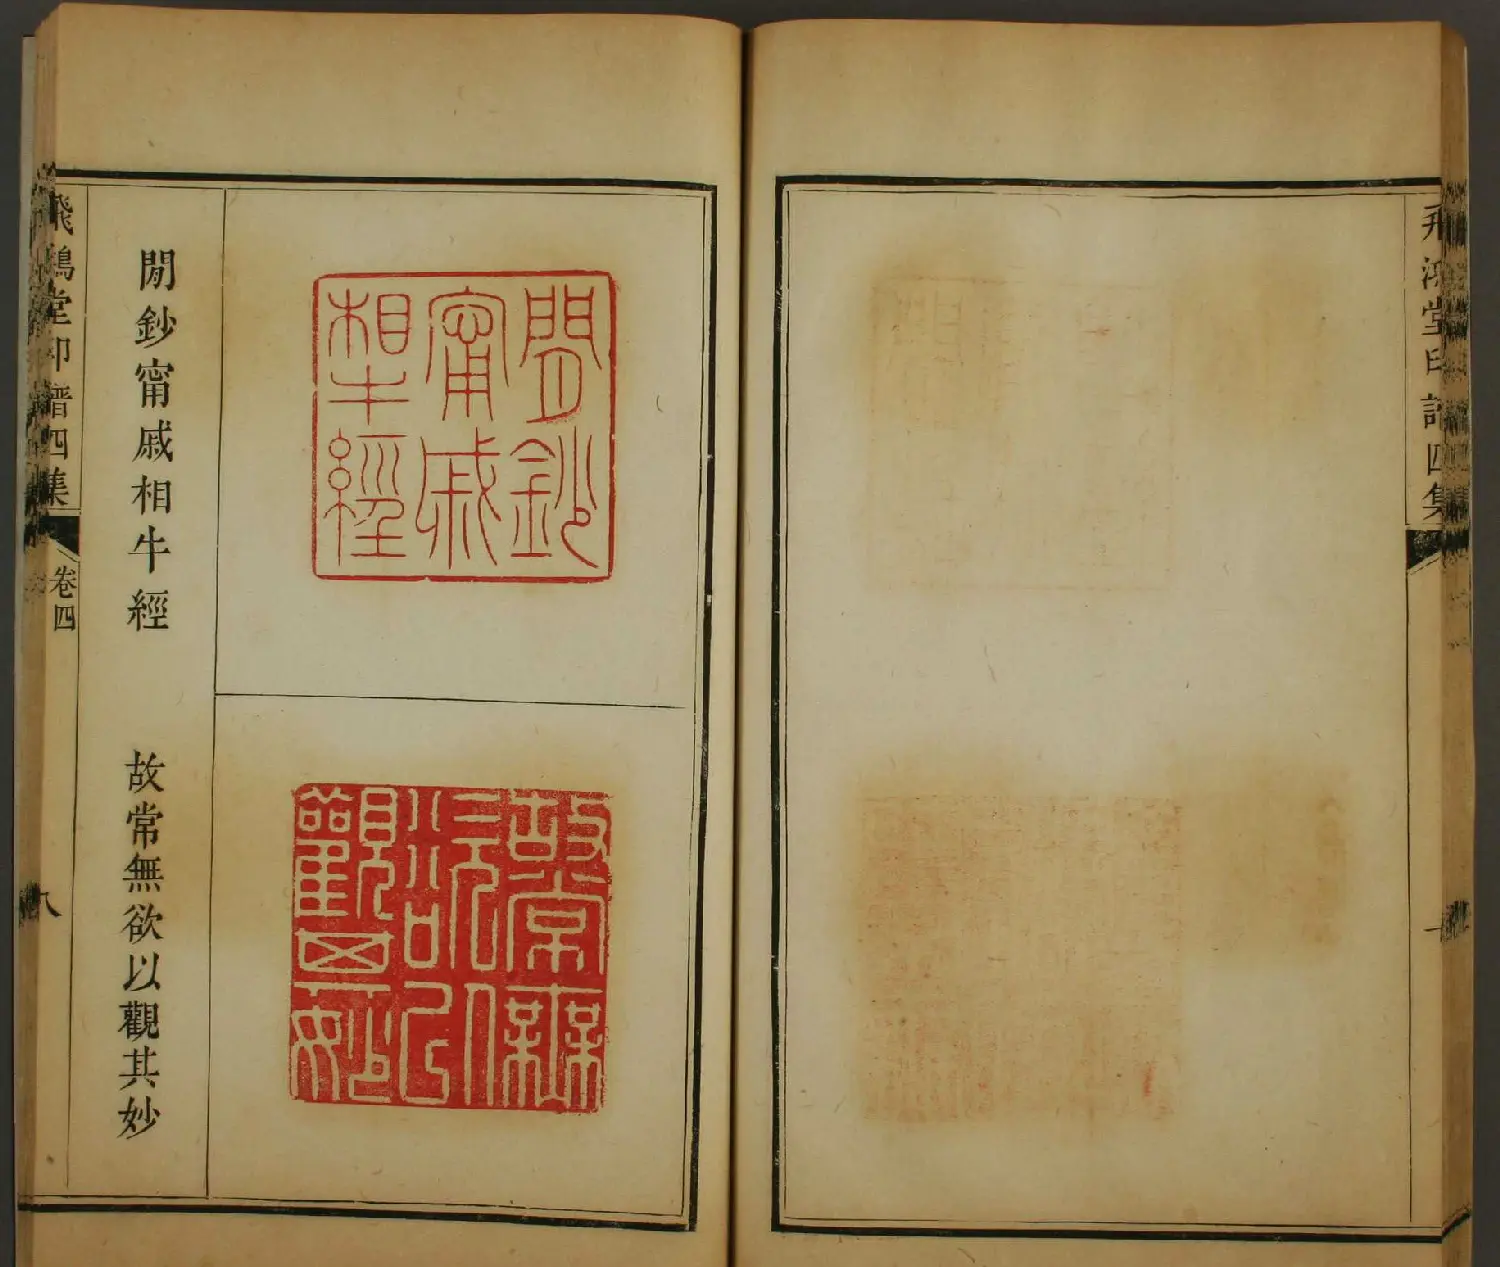 飛鴻堂印譜四集
閒鈔
甯戚
相牛經
故常無
欲以
觀其妙
閒鈔甯戚相牛經
故常無欲以觀其妙
飛鴻堂印譜四集
卷四
八